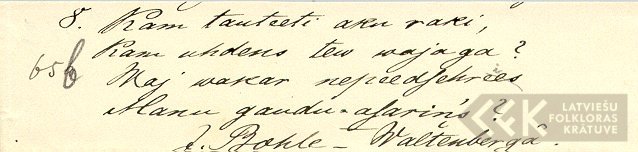 8. Kam tauteeti aku raki,
656 Kam uhdens tew wajaga?
Waj wakar nepeedsehrees
Manu gaudu-asarin's?
J. Bohle – Waltenbergā.
LATVIEŠU
FOLKLORAS
KRĀTUVE